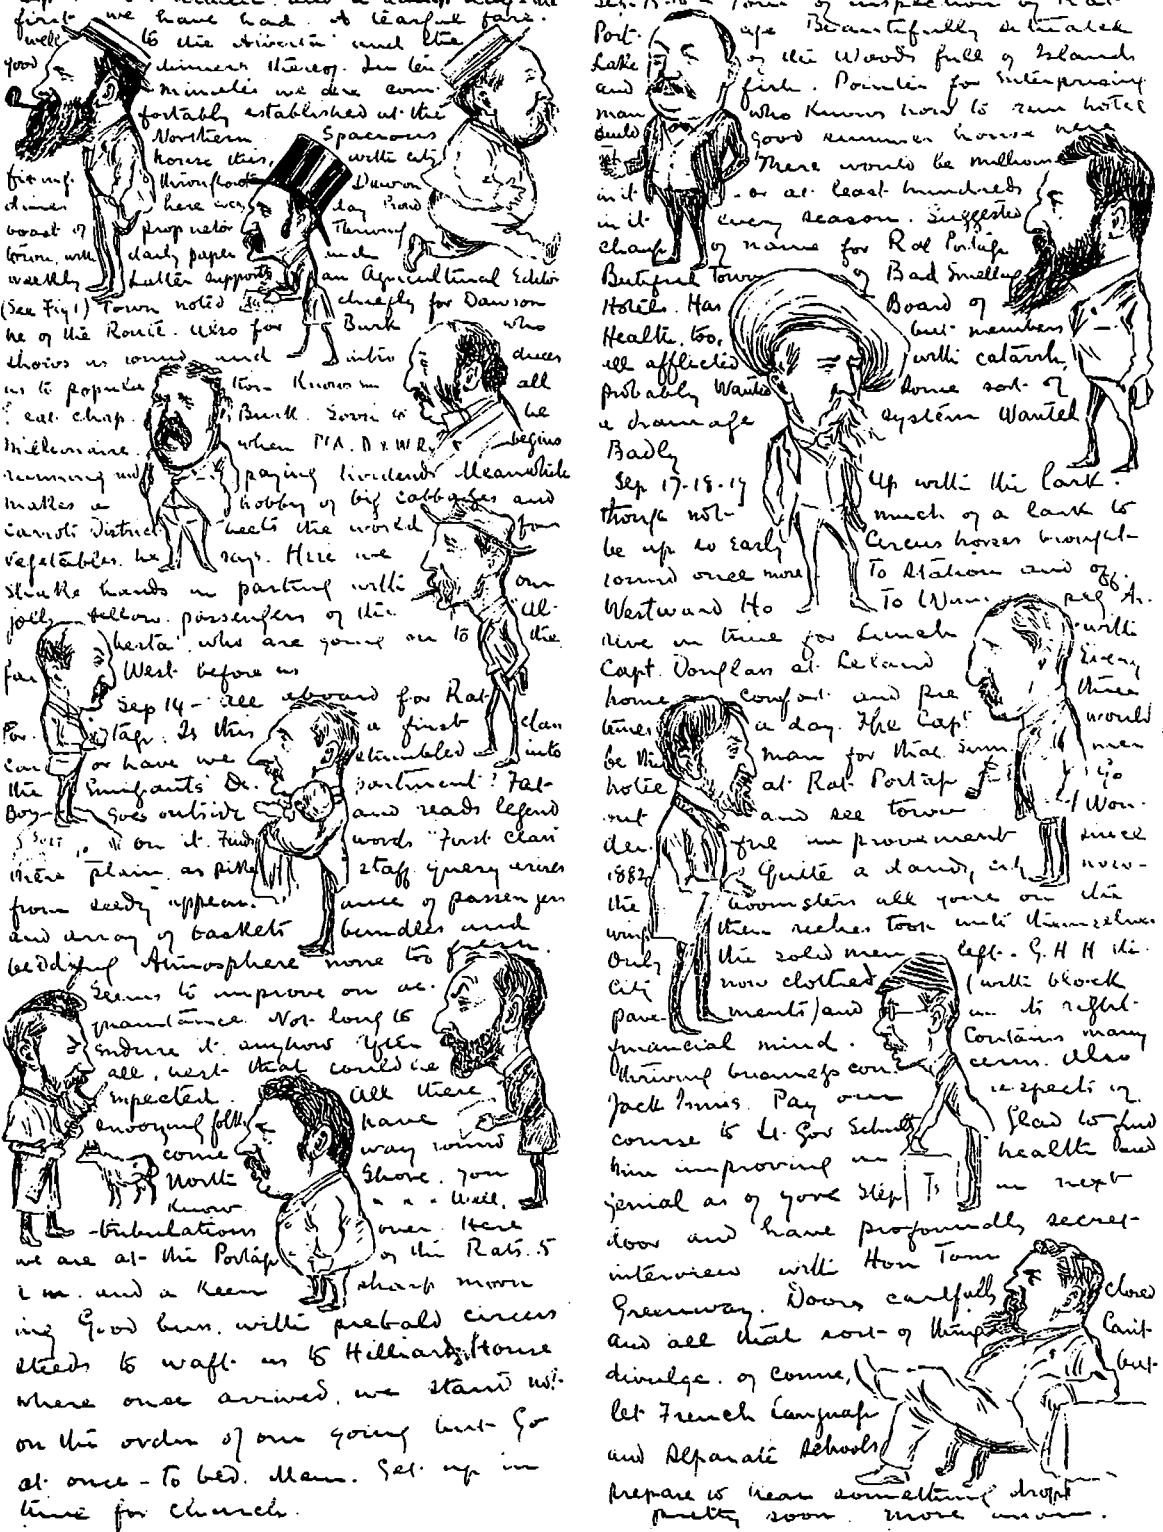 first we have had. A tearful fare-
well to the Alberta and the
good dinners thereof. In ten
minutes we are com-
fortably established at the
Northern Spacious
house this, with city
fixings throughout Dawson
dinner here
boast of proprietor Thriving
town, with daily paper and
weekly Latter supports an Agricultural Editor
(See Fig 1) Town noted chiefly for Dawson
he of the Route. Also for Burk who
shows us round and intro duces
us to popular Knows all
chap. Burk. Soon to be
Millionaire. when P.A. D & W.R. begins
running and paying dividends Meanwhile
makes a hobby of big cabbages and
carrots District beets the world for
vegetables. he says. Here we
shake hands in parting with our
jolly fellow passengers of the Al-
berta who are going on to the
far West before us
Sep 14 - All aboard for Rat
Por- tage. Is this a first class
car or have we stumbled into
the Emigrants De- partment? Fat
Boy goes outside and reads legend
on it. Finds words "First Class
there plain as pike staff query arises
from seedy appear- ance of passengers
and array of baskets bundles and
bedding Atmosphere none too fresh.
Seems to improve on ac-
quaintance. Not long to
endure it anyhow. After
all, best that could be
expected. All these
annoying folk have
come way round
North Shore. you
know " " " Well,
-tribulations over. Here
we are at the Portage of the Rats. 5
a m. and a keen sharp morn
ing Good buss. with piebald circus
steeds to waft us to Hilliard House
where once arrived. we stand not
on the order of our going but Go
at once - to bed. Mem. Get up in
time for church.
Sep. 15-16 - Tour of inspection of Rat
Port- age Beautifully situated
Lake of the Woods full of Islands
and fish. Pointer for Enterprising
man who knows how to run hotel
Build good summer house here
There would be millions
in it - or at least hundreds
in it every season. Suggested
change of name for Rat Portage
Beautiful Town of Bad Smelling
Hotels. Has Board of
Health, too, but members
all afflicted with catarrh,
probably Wanted Some sort of
a drainage system Wanted
Badly
Sep 17-18-19 Up with the lark.
though not much of a lark to
be up so Early Circus horses brought
round once more To Station and off.
Westward Ho To Winni peg Ar-
rive in time for Lunch with
Capt. Douglass at Leland Every
home comfort and pie three
times a day. The Capt would
be the man for that Summer
hotel at Rat Portage Go
out and see town Won-
der- ful improvement since
1882 Quite a dandy city now-
the boomsters all gone on the
wing their riches took unto themselves
Only the solid men left. G. H H the
City now clothed (with block
pave- ments) and in its right
financial mind. Contains many
thriving business con- cerns. Also
Jack Innis. Pay our respects of
course to Lt. Gov Schultz Glad to find
him improving in health and
genial as of yore Step in next
door and have profoundly secret
interview with Hon Tom
Greenway. Doors carefully closed
and all that sort of things Can't
divulge. of course, but
let French Language
and Separate Schools
prepare to hear something dropt
pretty soon. more anon.